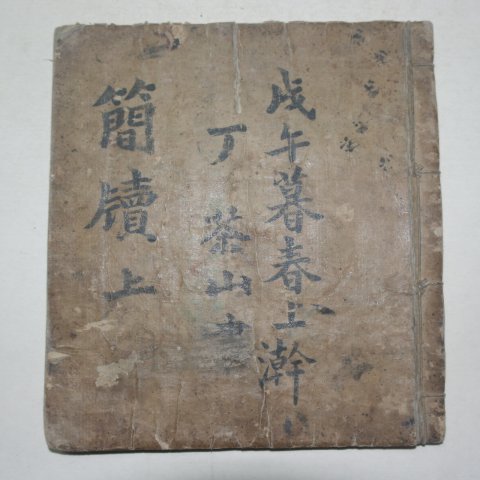 戊午暮春上澣
丁茶山
簡牘上